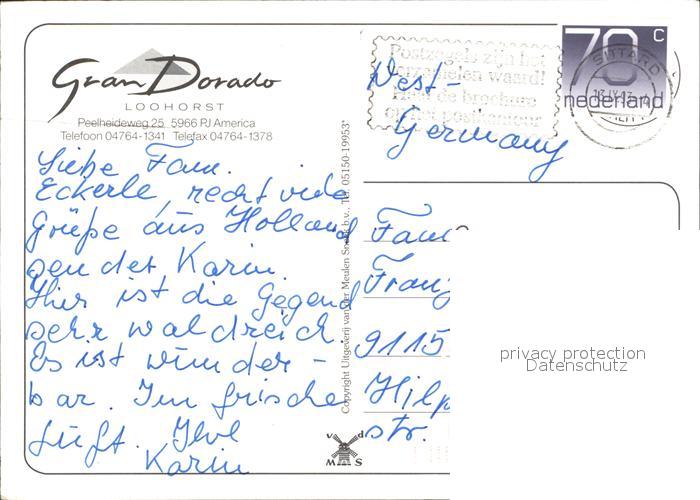 Gran Dorado
LOOHORST
Peelheideweg 25 5966 PJ America
Telefoon 04764-1341 Telefax 04764-1378
Liebe Fam.
Eckerle, recht viele
Grüße aus Holland
sendet Karin.
Hier ist die Gegend
sehr waldreich.
Es ist wunder-
bar. Im frische
Luft. Ihre
Karin
Copyright Uitgeverij van der Meulen Sneek b.v., Tel. 05150-19953*
v d
M S
Postzegels zijn het
verzamelen waard!
Haal de brochure
op het postkantoor
70 c
nederland
SITTARD
West-
Germany
Fam
Franz
9115
Hilp
str.
privacy protection
Datenschutz